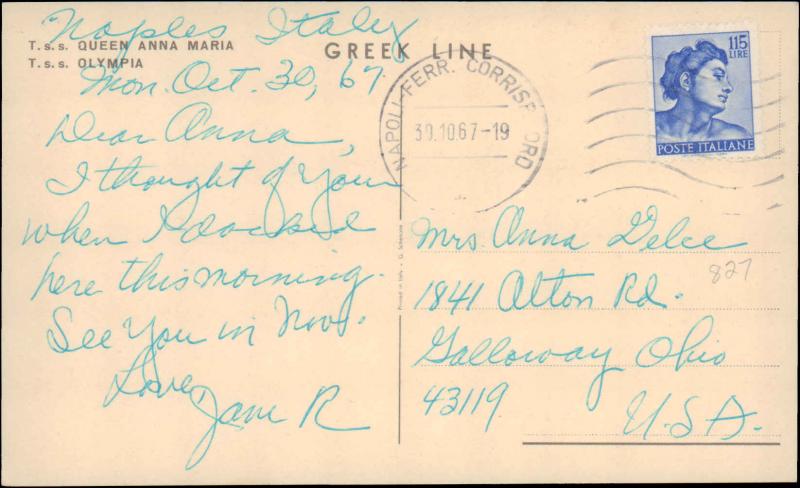 Naples Italy
T.s.s. QUEEN ANNA MARIA
T.s.s. OLYMPIA
GREEK LINE
Mon. Oct. 30, 67.
Dear Anna,
I thought of You
when I docked
here this morning.
See You in Nov.
Love,
Jane R
NAPOLI-FERR. CORRISP ORD
30.10.67-19
115
LIRE
POSTE ITALIANE
Mrs. Anna Delce
1841 Alton Rd.
Galloway Ohio
43119
U.S.A.
827